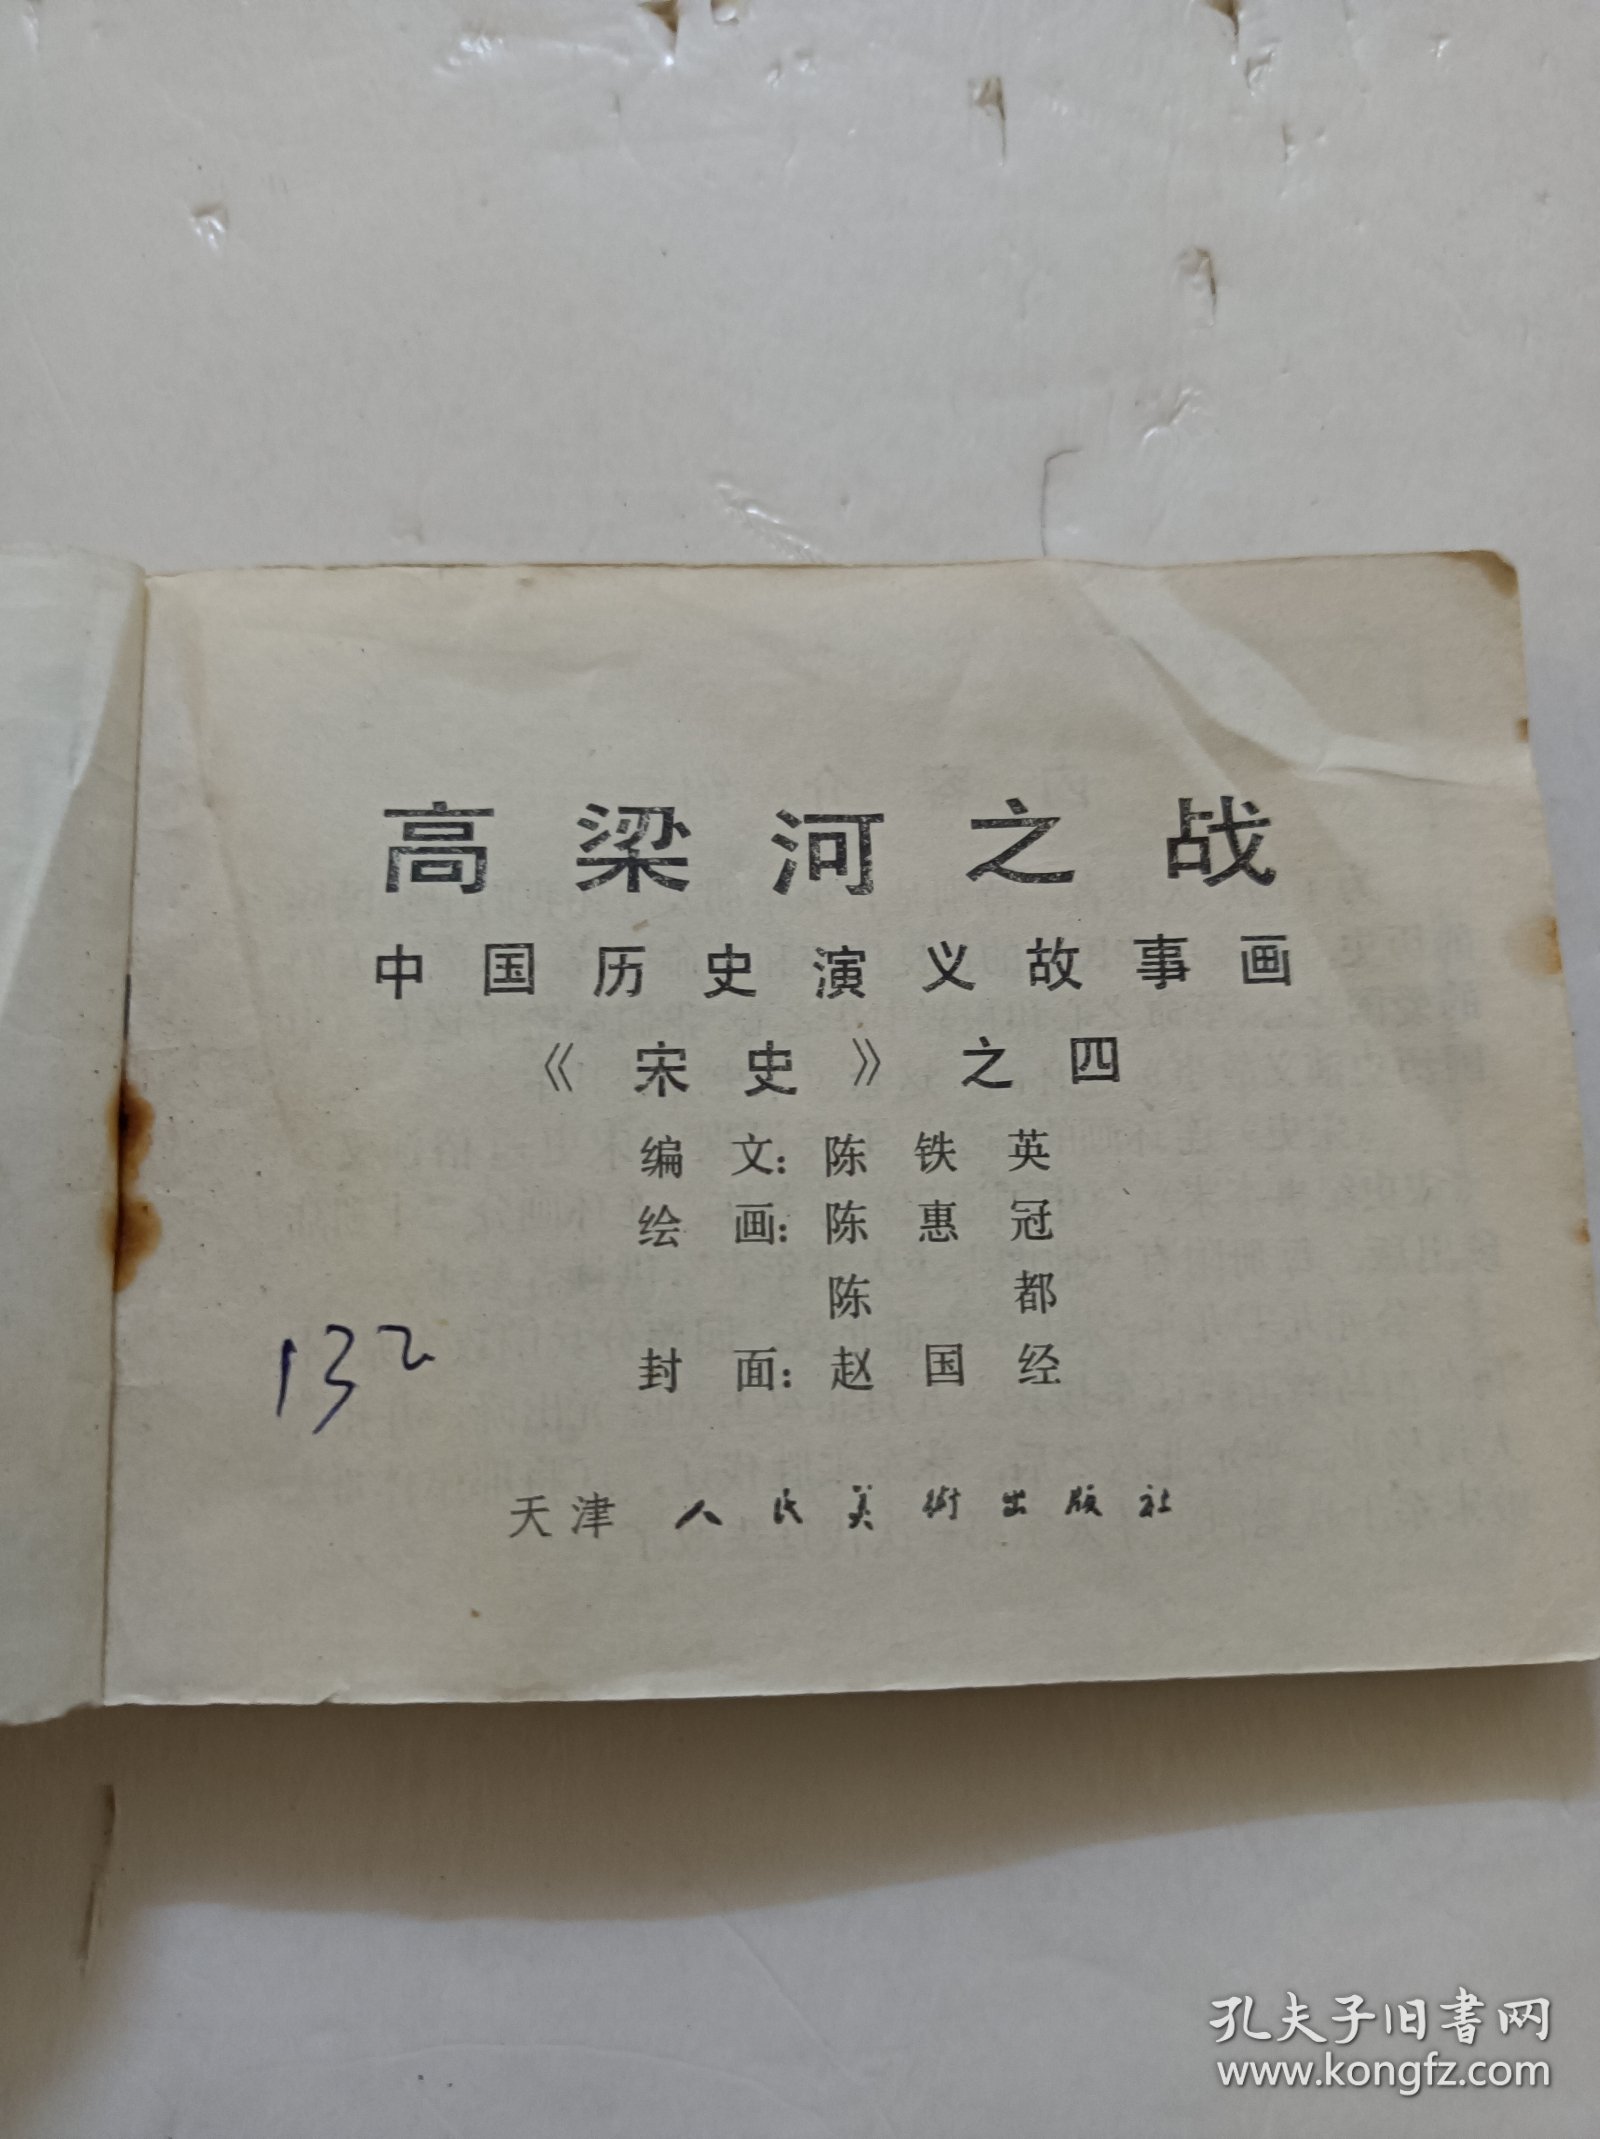 高梁河之战
中国历史演义故事画
《宋史》之四
编文：陈铁英
绘画：陈惠冠
陈都
封面：赵国经
132
天津人民美術出版社
孔夫子旧书网
www.kongfz.com